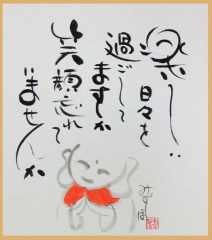 楽しい
日々を
過ごして
ますか
笑顔忘れて
いませんか